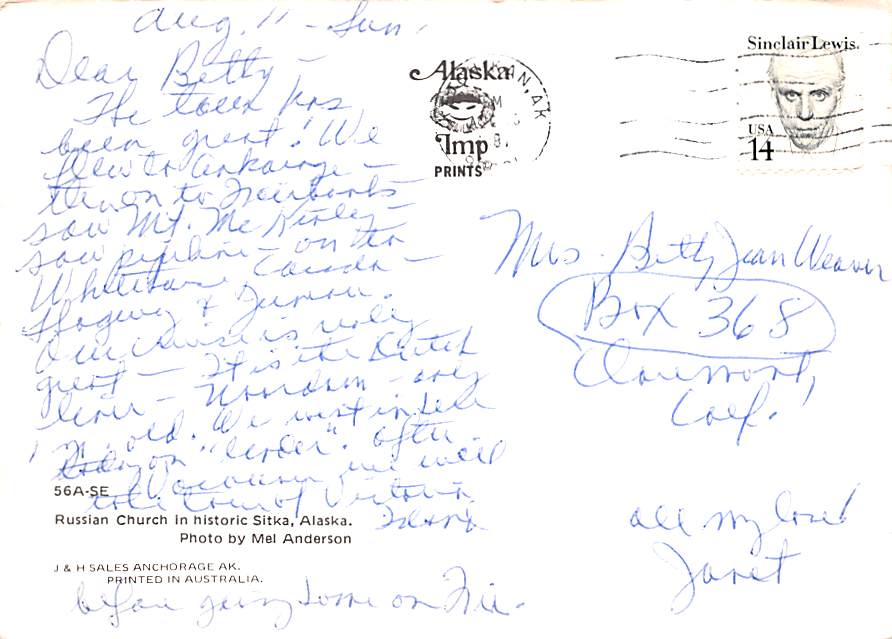 Aug. 11 - Sun.
Dear Betty -
The tour has
been great! We
flew to Ankorage -
then on to Fairbanks -
saw Mt. McKinley -
saw pipeline - on to
Whitehorse, Canada -
Skagway & Juneau.
Our cruise is really
great - It is the Dutch
liner - Noordam - only
1 yr. old. We went in
on "tender". After
Vancouver we will
take tour of Victoria
Island
before going home on Fri.
Alaska
Imp
PRINTS
KETCHIKAN, AK
Sinclair Lewis.
USA
14
Mrs. Betty Jean Weaver
Box 368
Claremont,
Calif.
All my love!
Janet
56A-SE
Russian Church in historic Sitka, Alaska.
Photo by Mel Anderson
J & H SALES ANCHORAGE AK.
PRINTED IN AUSTRALIA.